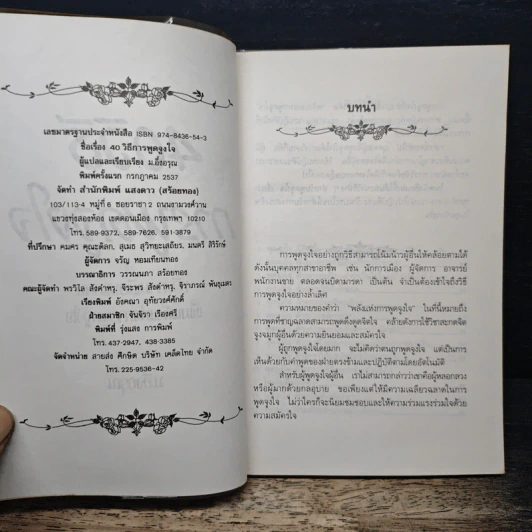 เลขมาตรฐานประจำหนังสือ ISBN 974-8436-54-3
ชื่อเรื่อง 40 วิธีการพูดจูงใจ
ผู้แปลและเรียบเรียง ม.อึ้งอรุณ
พิมพ์ครั้งแรก กรกฎาคม 2537
จัดทำ สำนักพิมพ์ แสงดาว (สร้อยทอง)
103/113-4 หมู่ที่ 6 ซอยราชา 2 ถนนงามวงศ์วาน
แขวงทุ่งสองห้อง เขตดอนเมือง กรุงเทพฯ 10210
โทร. 589-9372, 589-7626, 591-3879
ที่ปรึกษา คมศร คุณะดิลก, สุเมธ สุวิทยะเสถียร, มนตรี ศิริรักษ์
ผู้จัดการ จรัญ หอมเทียนทอง
บรรณาธิการ วรรณนภา สร้อยทอง
คณะผู้จัดทำ พรวิไล สังคำหรุ, จีระพร สังคำหรุ, จิราภรณ์ พันธุเมตร
เรียงพิมพ์ อังคณา อุทัยวงศ์ศักดิ์
ฝ่ายสมาชิก จันจิรา เรืองศรี
พิมพ์ที่ รุ่งแสง การพิมพ์
โทร. 437-2947, 438-3385
จัดจำหน่าย สายส่ง ศึกษิต บริษัท เคล็ดไทย จำกัด
โทร. 225-9536-42
บทนำ
การพูดจูงใจอย่างถูกวิธีสามารถโน้มน้าวผู้อื่นให้คล้อยตามได้
ดังนั้นบุคคลทุกสาขาอาชีพ เช่น นักการเมือง ผู้จัดการ อาจารย์
พนักงานขาย ตลอดจนบิดามารดา เป็นต้น จำเป็นต้องเข้าใจถึงวิธี
การพูดจูงใจอย่างล้ำเลิศ
ความหมายของคำว่า "พลังแห่งการพูดจูงใจ" ในที่นี้หมายถึง
การพูดที่ชาญฉลาดสามารถพูดดึงดูดจิตใจ คล้ายดังการใช้ไขสะกดจิต
จูงจมูกผู้อื่นด้วยความยินยอมและสมัครใจ
ผู้ถูกพูดจูงใจโดยมาก จะไม่คิดว่าตนถูกพูดจูงใจ แต่เป็นการ
เห็นด้วยกับคำพูดของฝ่ายตรงข้ามและปฏิบัติตามโดยอัตโนมัติ
สำหรับผู้พูดจูงใจผู้อื่น เราไม่สามารถกล่าวว่าเขาคือผู้หลอกลวง
หรือผู้มากด้วยกลอุบาย ขอเพียงแต่ให้มีความเฉลียวฉลาดในการ
พูดจูงใจ ไม่ว่าใครก็จะนิยมชมชอบและให้ความร่วมแรงร่วมใจด้วย
ความสมัครใจ